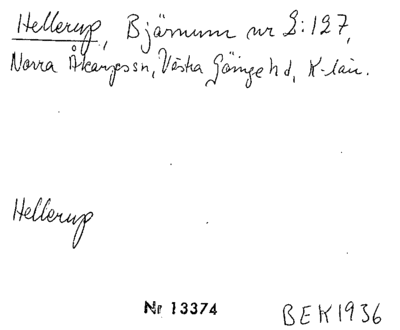 Hellerup, Bjärnum nr 2:127,
Norra Åkarps sn, Västra Göinge hd, K-län.
Hellerup
Nr 13374
BEK1936